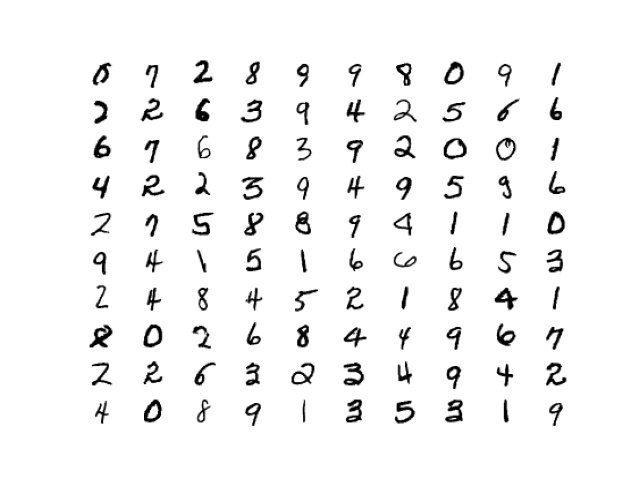 0 7 2 8 9 9 8 0 9 1
2 2 6 3 9 4 2 5 6 6
6 7 6 8 3 9 2 0 0 1
4 2 2 3 9 4 9 5 9 6
2 7 5 8 8 9 4 1 1 0
9 4 1 5 1 6 6 6 5 3
2 4 8 4 5 2 1 8 4 1
8 0 2 6 8 4 4 9 6 7
2 2 6 3 2 3 4 9 4 2
4 0 8 9 1 3 5 3 1 9